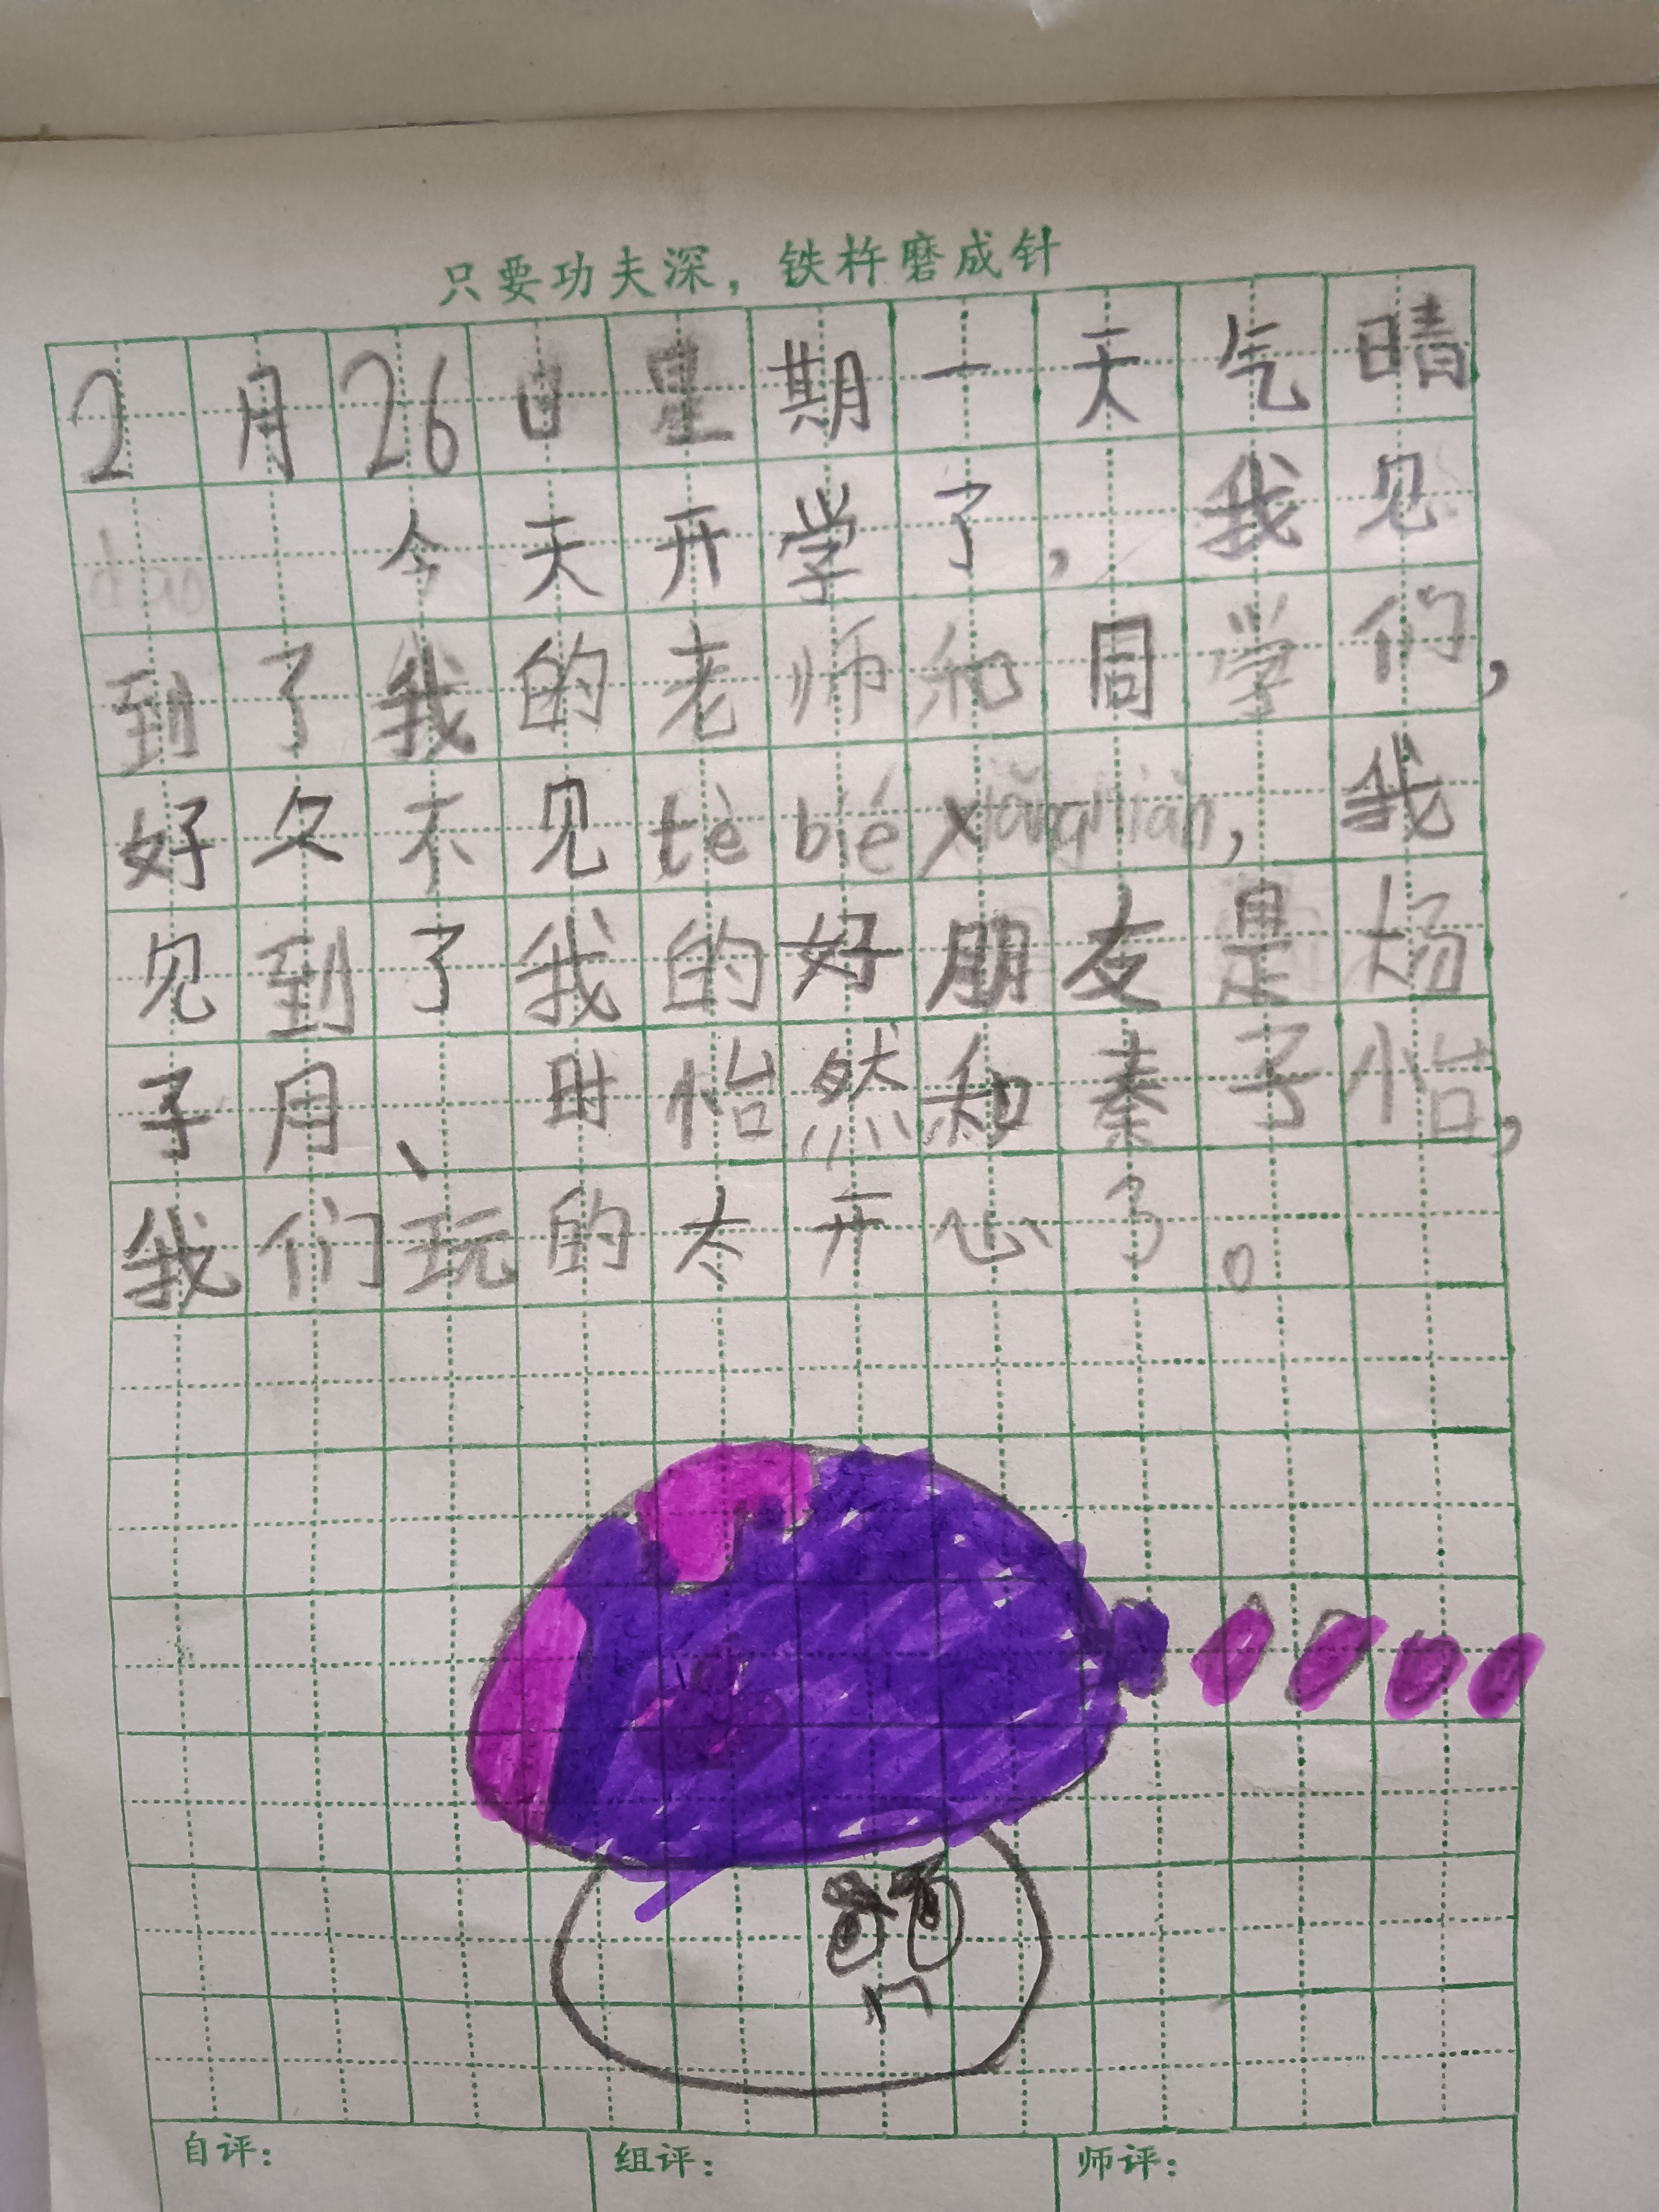 只要功夫深，铁杵磨成针
2月26日星期一天气晴
今天开学了，我见
到了我的老师和同学们，
好久不见tè bié xiǎng niàn，我
见到了我的好朋友是杨
子用、时怡然和秦子怡，
我们玩的太开心了。
自评：
组评：
师评：